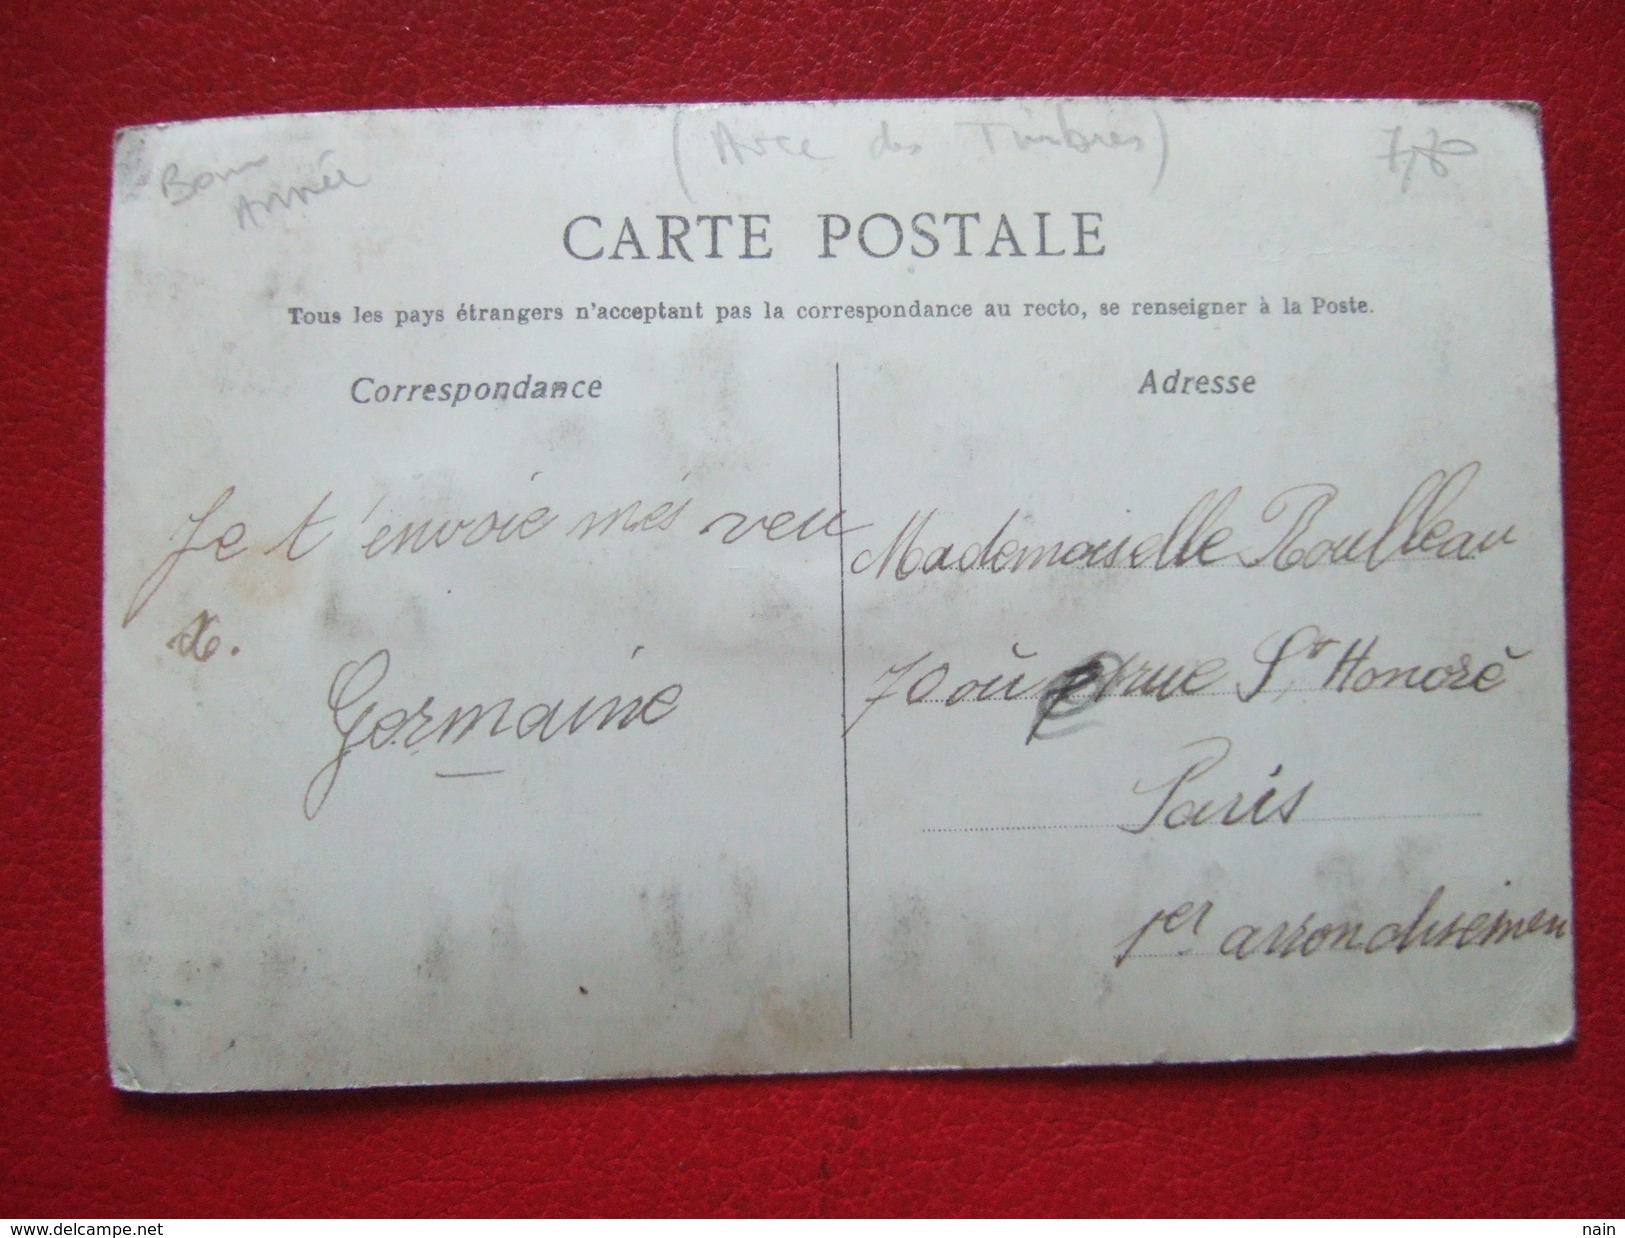 Bonne
Année
(Avec des Timbres)
CARTE POSTALE
Tous les pays étrangers n'acceptant pas la correspondance au recto, se renseigner à la Poste.
Correspondance
Adresse
Je t'envoie mes veu
x.
Germaine
Mademoiselle Roulleau
70 où rue St Honoré
Paris
1er arrondisemen
www.delcampe.net
nain